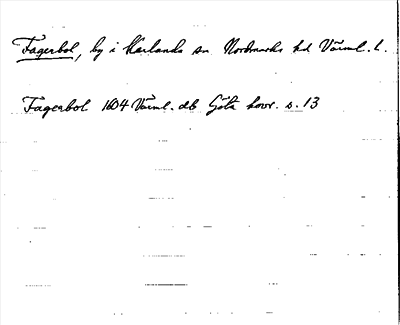 Fagerbol, by i Karlanda sn Nordmarks hd Värml. l.
Fagerbol 1604 Värml. db Göta hovr. s. 13